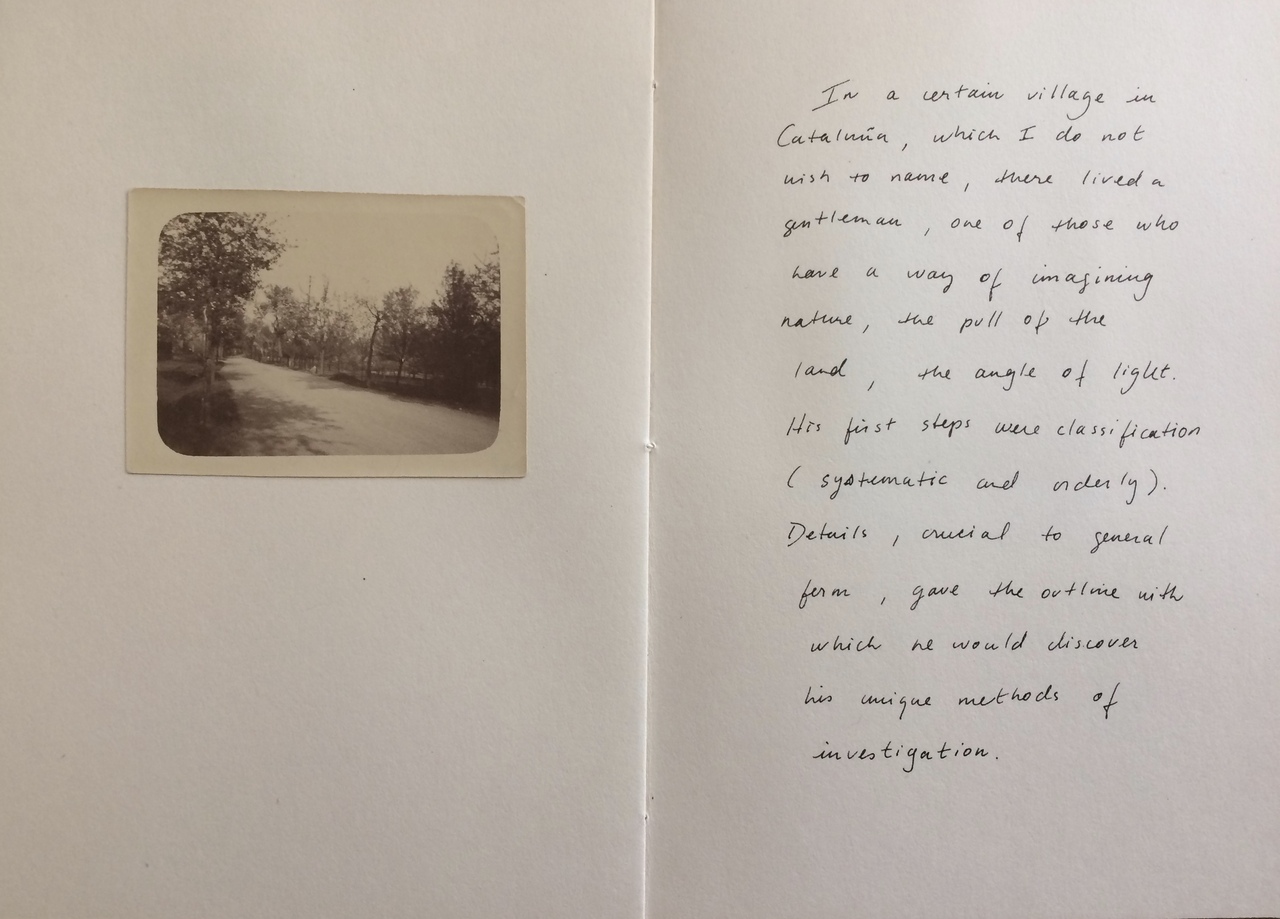 In a certain village in
Cataluña, which I do not
wish to name, there lived a
gentleman, one of those who
have a way of imagining
nature, the pull of the
land, the angle of light.
His first steps were classification
(systematic and orderly).
Details, crucial to general
form, gave the outline with
which he would discover
his unique methods of
investigation.